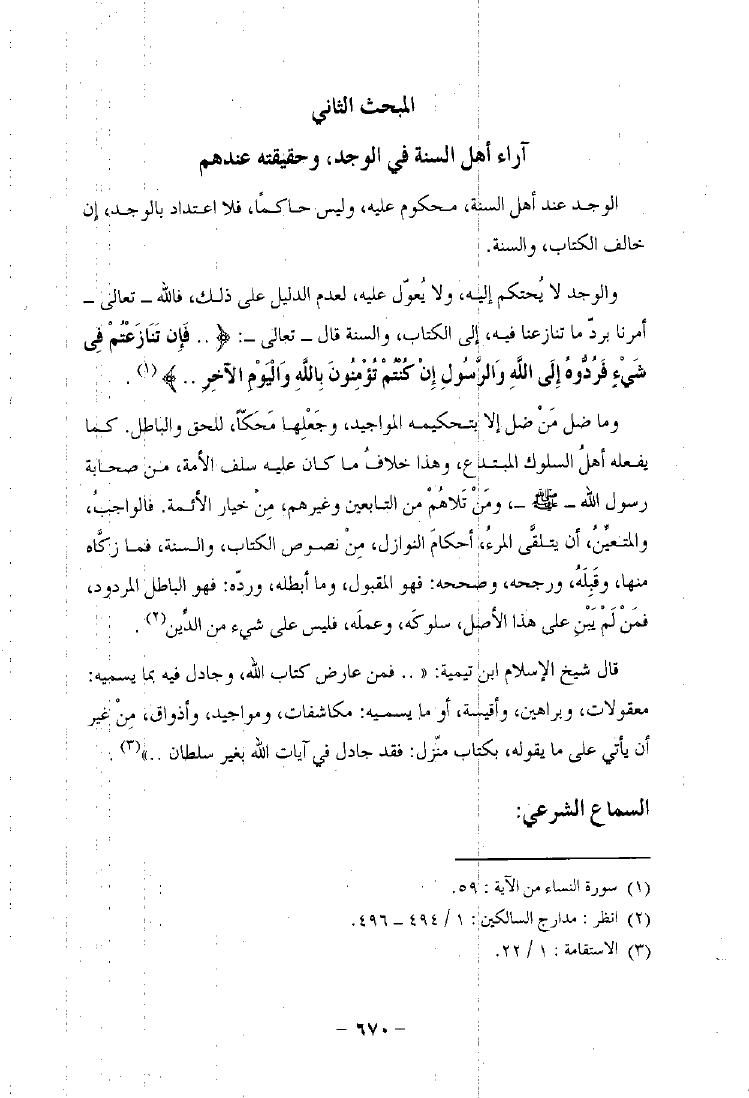 المبحث الثاني
آراء أهل السنة في الوجد، وحقيقته عندهم
الوجد عند أهل السنة، محكوم عليه، وليس حاكمًا، فلا اعتداد بالوجد، إن
خالف الكتاب، والسنة.
والوجد لا يُحتكم إليه، ولا يُعوّل عليه، لعدم الدليل على ذلك، فالله ـ تعالى ـ
أمرنا بردّ ما تنازعنا فيه، إلى الكتاب، والسنة قال ـ تعالى ـ: ﴿ .. فَإِن تَنَازَعْتُمْ فِي
شَيْءٍ فَرُدُّوهُ إِلَى اللَّهِ وَالرَّسُولِ إِنْ كُنْتُمْ تُؤْمِنُونَ بِاللَّهِ وَالْيَوْمِ الآخِرِ .. ﴾ (١) .
وما ضل مَنْ ضل إلا بتحكيمه المواجيد، وجَعْلِها مَحَكّاً، للحق والباطل. كما
يفعله أهلُ السلوك المبتدع، وهذا خلافُ ما كان عليه سلف الأمة، من صحابة
رسول الله ـ ﷺ ـ، ومَنْ تَلاهُمْ من التابعين وغيرهم، مِنْ خيار الأئمة. فالواجبُ،
والمتعيِّنُ، أن يتلقَّى المرءُ، أحكامَ النوازل، مِنْ نصوص الكتاب، والسنة، فما زكَّاه
منها، وقَبِلَهُ، ورجحه، وصححه: فهو المقبول، وما أبطله، وردّه: فهو الباطل المردود،
فمَنْ لَمْ يَبْنِ على هذا الأصل، سلوكَه، وعملَه، فليس على شيء من الدِّين(٢) .
قال شيخ الإسلام ابن تيمية: « .. فمن عارض كتاب الله، وجادل فيه بما يسميه:
معقولات، وبراهين، وأقيسة، أو ما يسميه: مكاشفات، ومواجيد، وأذواق، مِنْ غير
أن يأتي على ما يقوله، بكتاب منّزل: فقد جادل في آيات الله بغير سلطان ..»(٣) .
السماع الشرعي:
(١) سورة النساء من الآية : ٥٩.
(٢) انظر : مدارج السالكين : ١ / ٤٩٤ ـ ٤٩٦.
(٣) الاستقامة : ١ / ٢٢.
– ٦٧٠ –